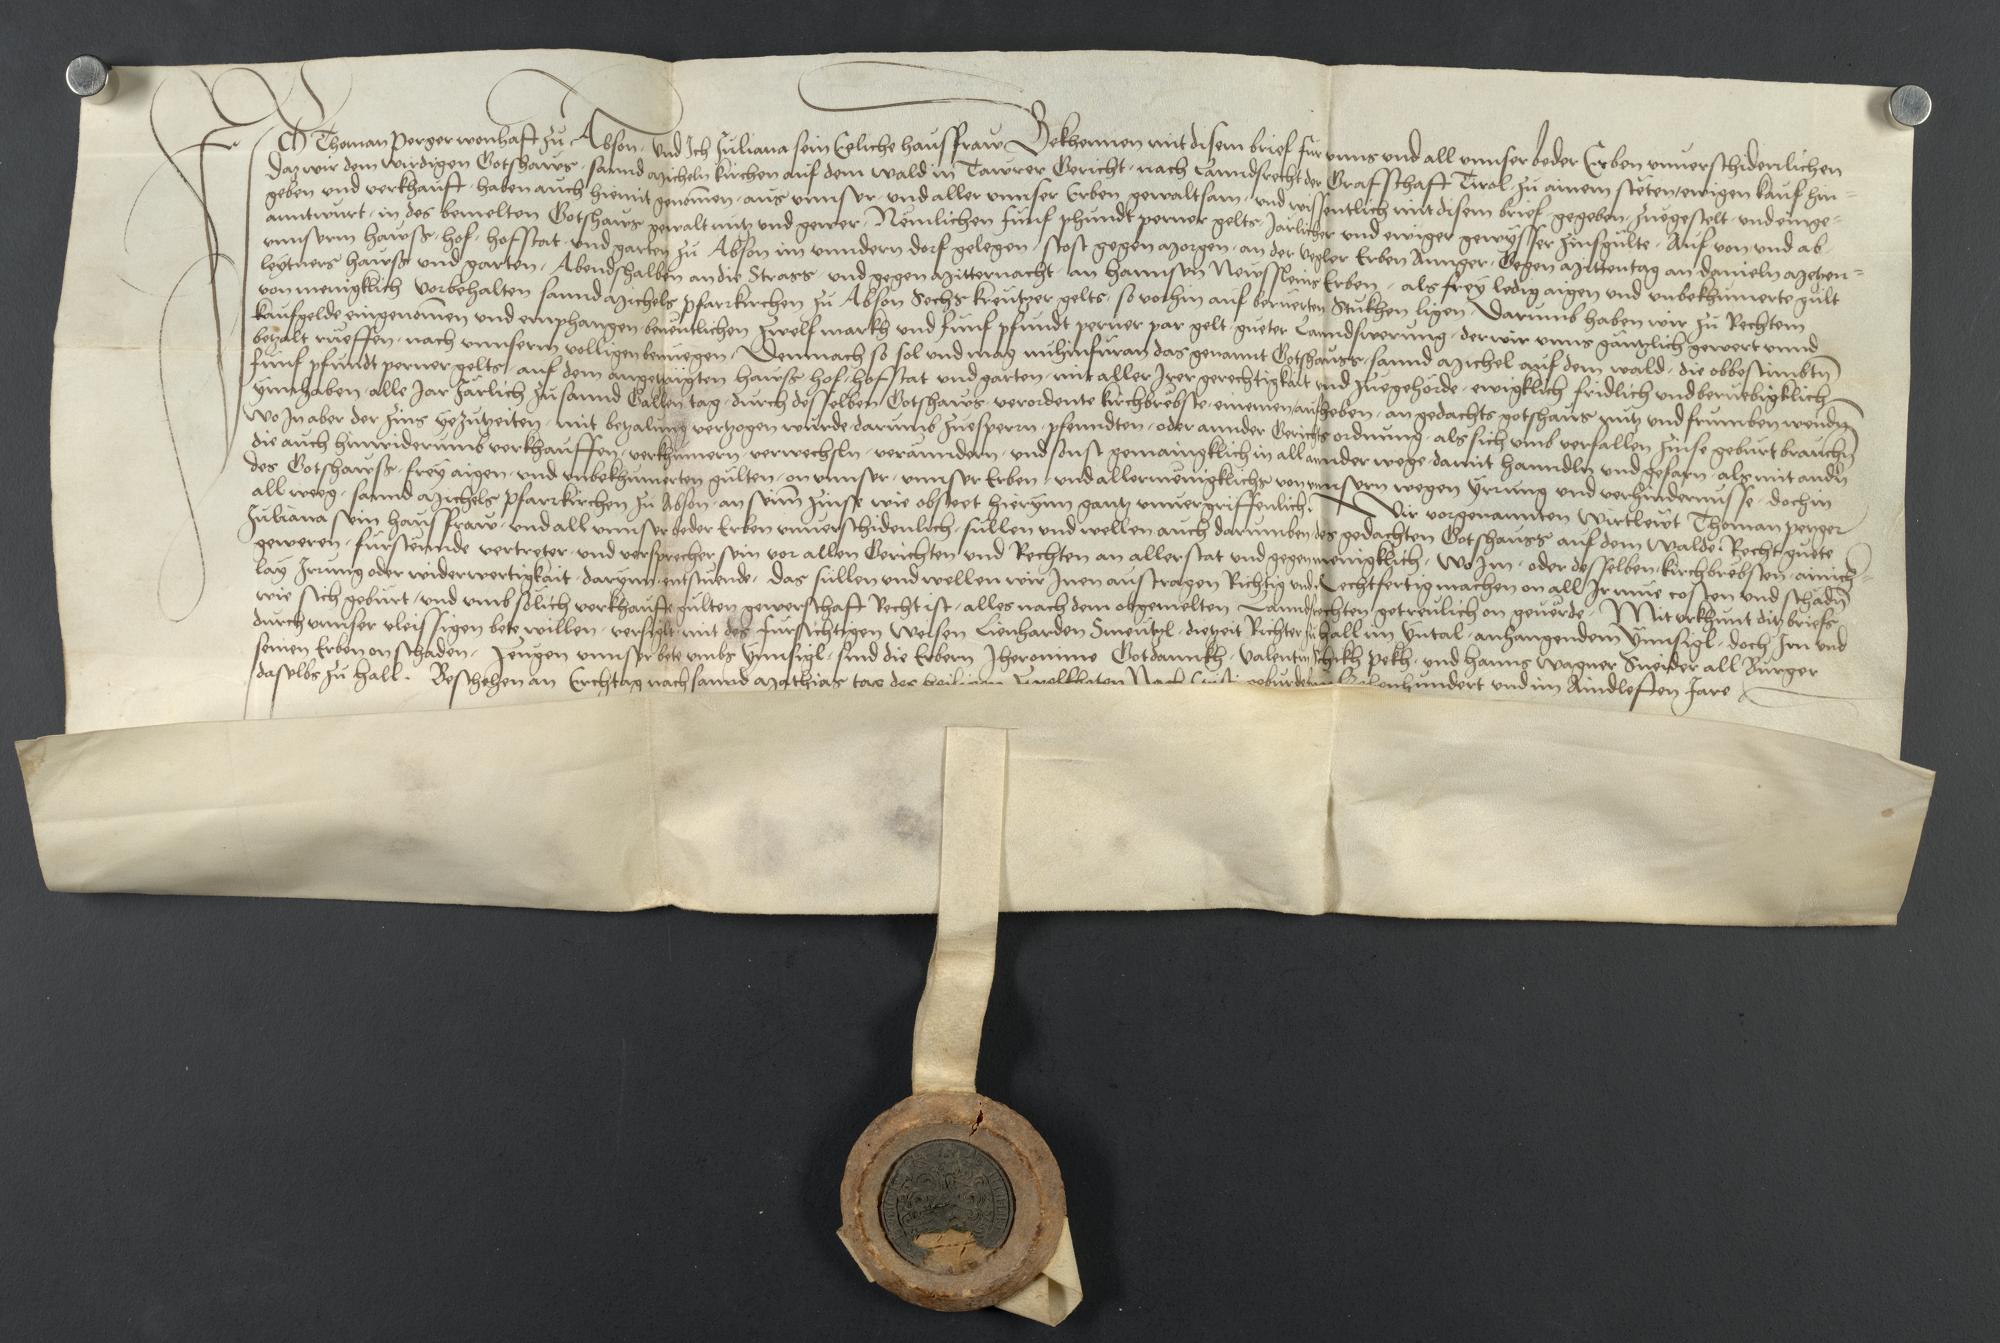 Ich Thoman Perger wonhaft zu Abson, und Ich Juliana sein Eeliche hausfraw Bekhennen mit disem brief für unns und all unnser beder Erben unuerschidenlichen
daz wir dem wirdigen Gotshaws sannd Micheln kirchen auf dem wald in Tawrer Gericht nach Lanndsrecht der Graffschaft Tirol zu ainem stêten ewigen kauf hin=
geben und verkhauft, haben auch hiemit genomen aus unnser und aller unnser Erben gewaltsam und wissentlich mit disem brief gegeben, zuegestelt und einge=
anntwurt in des bemelten Gotshaws gewalt nutz und gewer, Nemlichen funf phundt perner gelts Järlicher und ewiger gewysser zinsgülte, Auf von und ab
unnserm hawss, hof, hofstat und garten zu Abson im unndern dorf gelegen, stost gegen Morgen an der Vegler Erben Annger, Gegen Mittentag an danieln
leytners hawss und garten, Abendshalben an die Strass und gegen Mitternacht an hannsen Erben, als frey ledig aigen und unbekhumerte gült
von menigklich Vorbehalten sannd Michels pfarrkirchen zu Abson Sechs kreutzer gelts, so vorhin auf berüerten Stukhen ligen Darumb haben wir zu Rechtem
kaufgelde eingenomen und emphangen benentlichen zwelf markh und funf pfundt perner par gelt gueter Lanndswerung, der wir unns gäntzlich gewert unnd
betzalt rüeffen nach unnserm volligen benuegen, Demnach so sol und mag nuhinfüran das genannt Gotshawss sannd Michel auf dem wald die obbestimbtn
funf pfundt perner gelts auf dem angetzaigten hawss hof, hofstat und garten mit aller Irer gerechtigkait und zuegehörde ewigklich fridlich und beruebigklich
ynnhaben, alle Jar Järlich zu sannd Gallen tag durch desselben Gotshaws verordente kirchbrebste einemen aufheben an gedachts gotshaws nutz und frumben wenden
Wo In aber der zins yezutzeiten mit betzalung vertzogen wurde darumb zuesperrn pfenndten oder annder Gerichts ordnung als sich umb verfallen zinse geburt brauchen
die auch hinwiderumb verkhauffen verkhumern verwechseln veränndern und sonst gemainigklich in all annder wege damit hanndln und gefarn, als mit andern
des Gotshawss frey aigen und unbekhumerten gülten on unnser unnser Erben und allermenigklichs von unnsern wegen Yrrung und verhindernusse, doch in
all weeg sannd Michels pfarrkirchen zu Abson an seinem zinse wie obsteet hierynn gantz unuergriffenlich, Wir vorgenannten Wirtlewt Thoman perger
Juliana sein hausfraw und all unnser beder Erben unuerschidenlich, süllen und wellen auch darumben des gedachten Gotshawss auf dem Walde Recht guete
geweren fürsteunde vertreter und versprecher sein vor allen Gerichten und Rechten an aller stat und gegen menigklich, Wo Im oder desselben kirchbrebsten ainich=
lay Irrung oder widerwertigkait darynn entstuende, Das süllen und wellen wir Inen austragen Richtig und Rechtfertig machen on all Ir müe costen und schaden
wie sich gebürt und umb sölich verkhaufte gülten gewerschaft Recht ist, alles nach dem obgemelten Lanndsrechten getreulich on geuerde, Mit urkhunt ditz briefs
durch unnser vleissigen bete willen versiglt mit des fürsichtigen Weisen Lienharden Smeutzl dietzeit Richter zu hall im Yntal anhangendem Ynnsigl, doch Im und
seinen Erben on schaden, Zeugen unnser bete umbs Ynnsigl sind die Erbern Iheronime Gotdannkh, Valentin Schikh pekh und hanns Wagner Sneider all Burger
daselbs zu hall. Beschehen an Erchtag nach sannd Mathias tag des heiligen zwelfboten Nach Cristi geburde und im Aindleften Jare